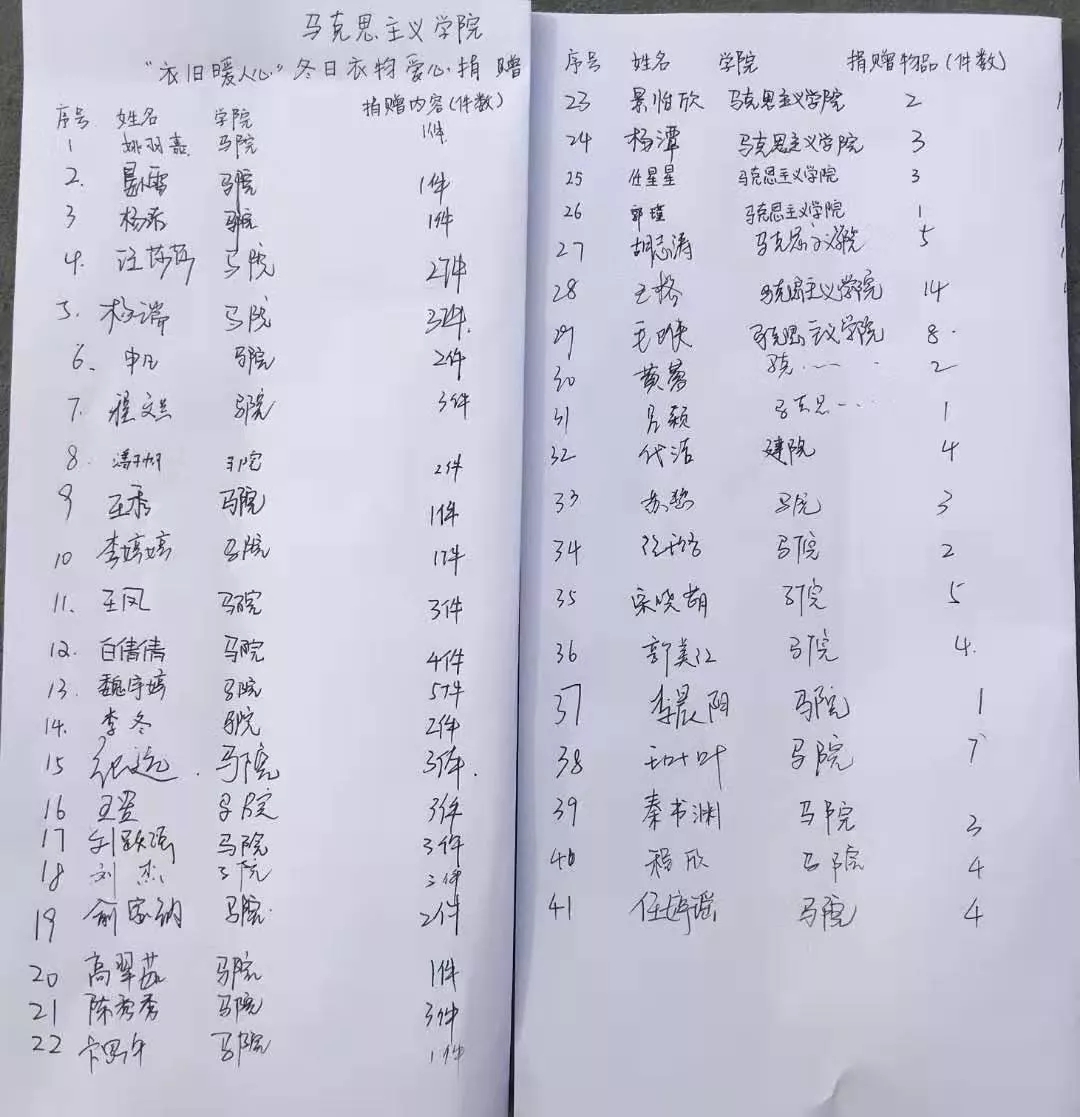 马克思主义学院
“衣旧暖人心”冬日衣物爱心捐赠
序号 姓名 学院 捐赠内容(件数)
1 姚羽嘉 马院 1件
2. 晏雷 马院 1件
3 杨 马院 1件
4. 汪莎莎 马院 2件
5. 杨端 马院 3件
6. 申 马院 2件
7. 程文 马院 3件
8. 潘 马院 2件
9 王秀 马院 1件
10 李婷婷 马院 1件
11. 王凤 马院 3件
12. 白倩倩 马院 4件
13. 魏宇婷 马院 5件
14. 李冬 马院 2件
15 马院 3件.
16 王 马院 3件
17 刘跃强 马院 3件
18 刘杰 马院 3件
19 俞家 马院 2件
20 高翠茹 马院 1件
21 陈秀秀 马院 3件
22 马院 1件
序号 姓名 学院 捐赠物品(件数)
23 景怡欣 马克思主义学院 2
24 杨潭 马克思主义学院 3
25 任星星 马克思主义学院 3
26 郭璞 马克思主义学院 1
27 胡志涛 马克思主义学院 5
28 王 马克思主义学院 14
29 毛 马克思主义学院 8
30 黄 马克…… 2
31 吕颖 马克思…… 1
32 代洁 建院 4
33 苏 马院 3
34 马院 2
35 宋晓萌 马院 5
36 郭美江 马院 4.
37 李晨阳 马院 1
38 叶 马院 7
39 秦书渊 马院 3
40 程欣 马院 4
41 任婷瑶 马院 4